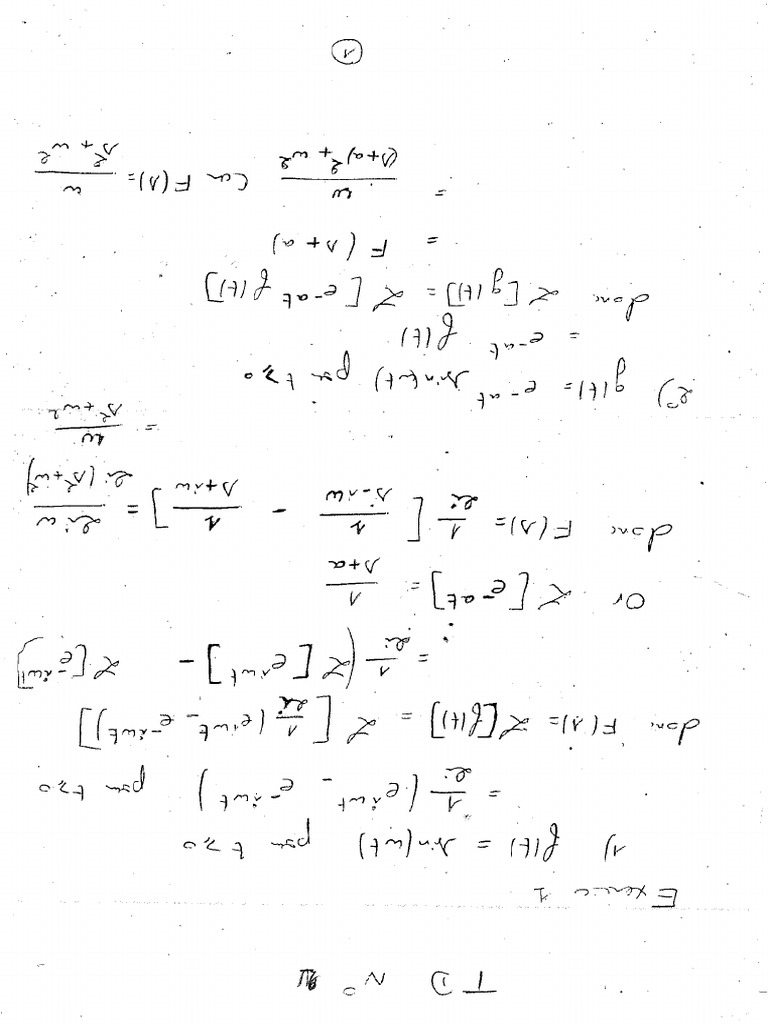 TD N°
Exercice 1
1) f(t) = sin(ωt) pour t ≥ 0
= 1/2i (e^iωt - e^-iωt) pour t ≥ 0
donc F(s) = ℒ[f(t)] = ℒ[1/2i (e^iωt - e^-iωt)]
= 1/2i (ℒ[e^iωt] - ℒ[e^-iωt])
Or ℒ[e^-at] = 1/(s+a)
donc F(s) = 1/2i [1/(s-iω) - 1/(s+iω)] = 2iω/(2i(s²+ω²))
= ω/(s²+ω²)
2°) g(t) = e^-at sin(ωt) pour t ≥ 0
= e^-at f(t)
donc ℒ[g(t)] = ℒ[e^-at f(t)]
= F(s+a)
= ω/((s+a)²+ω²) Car F(s) = ω/(s²+ω²)
1